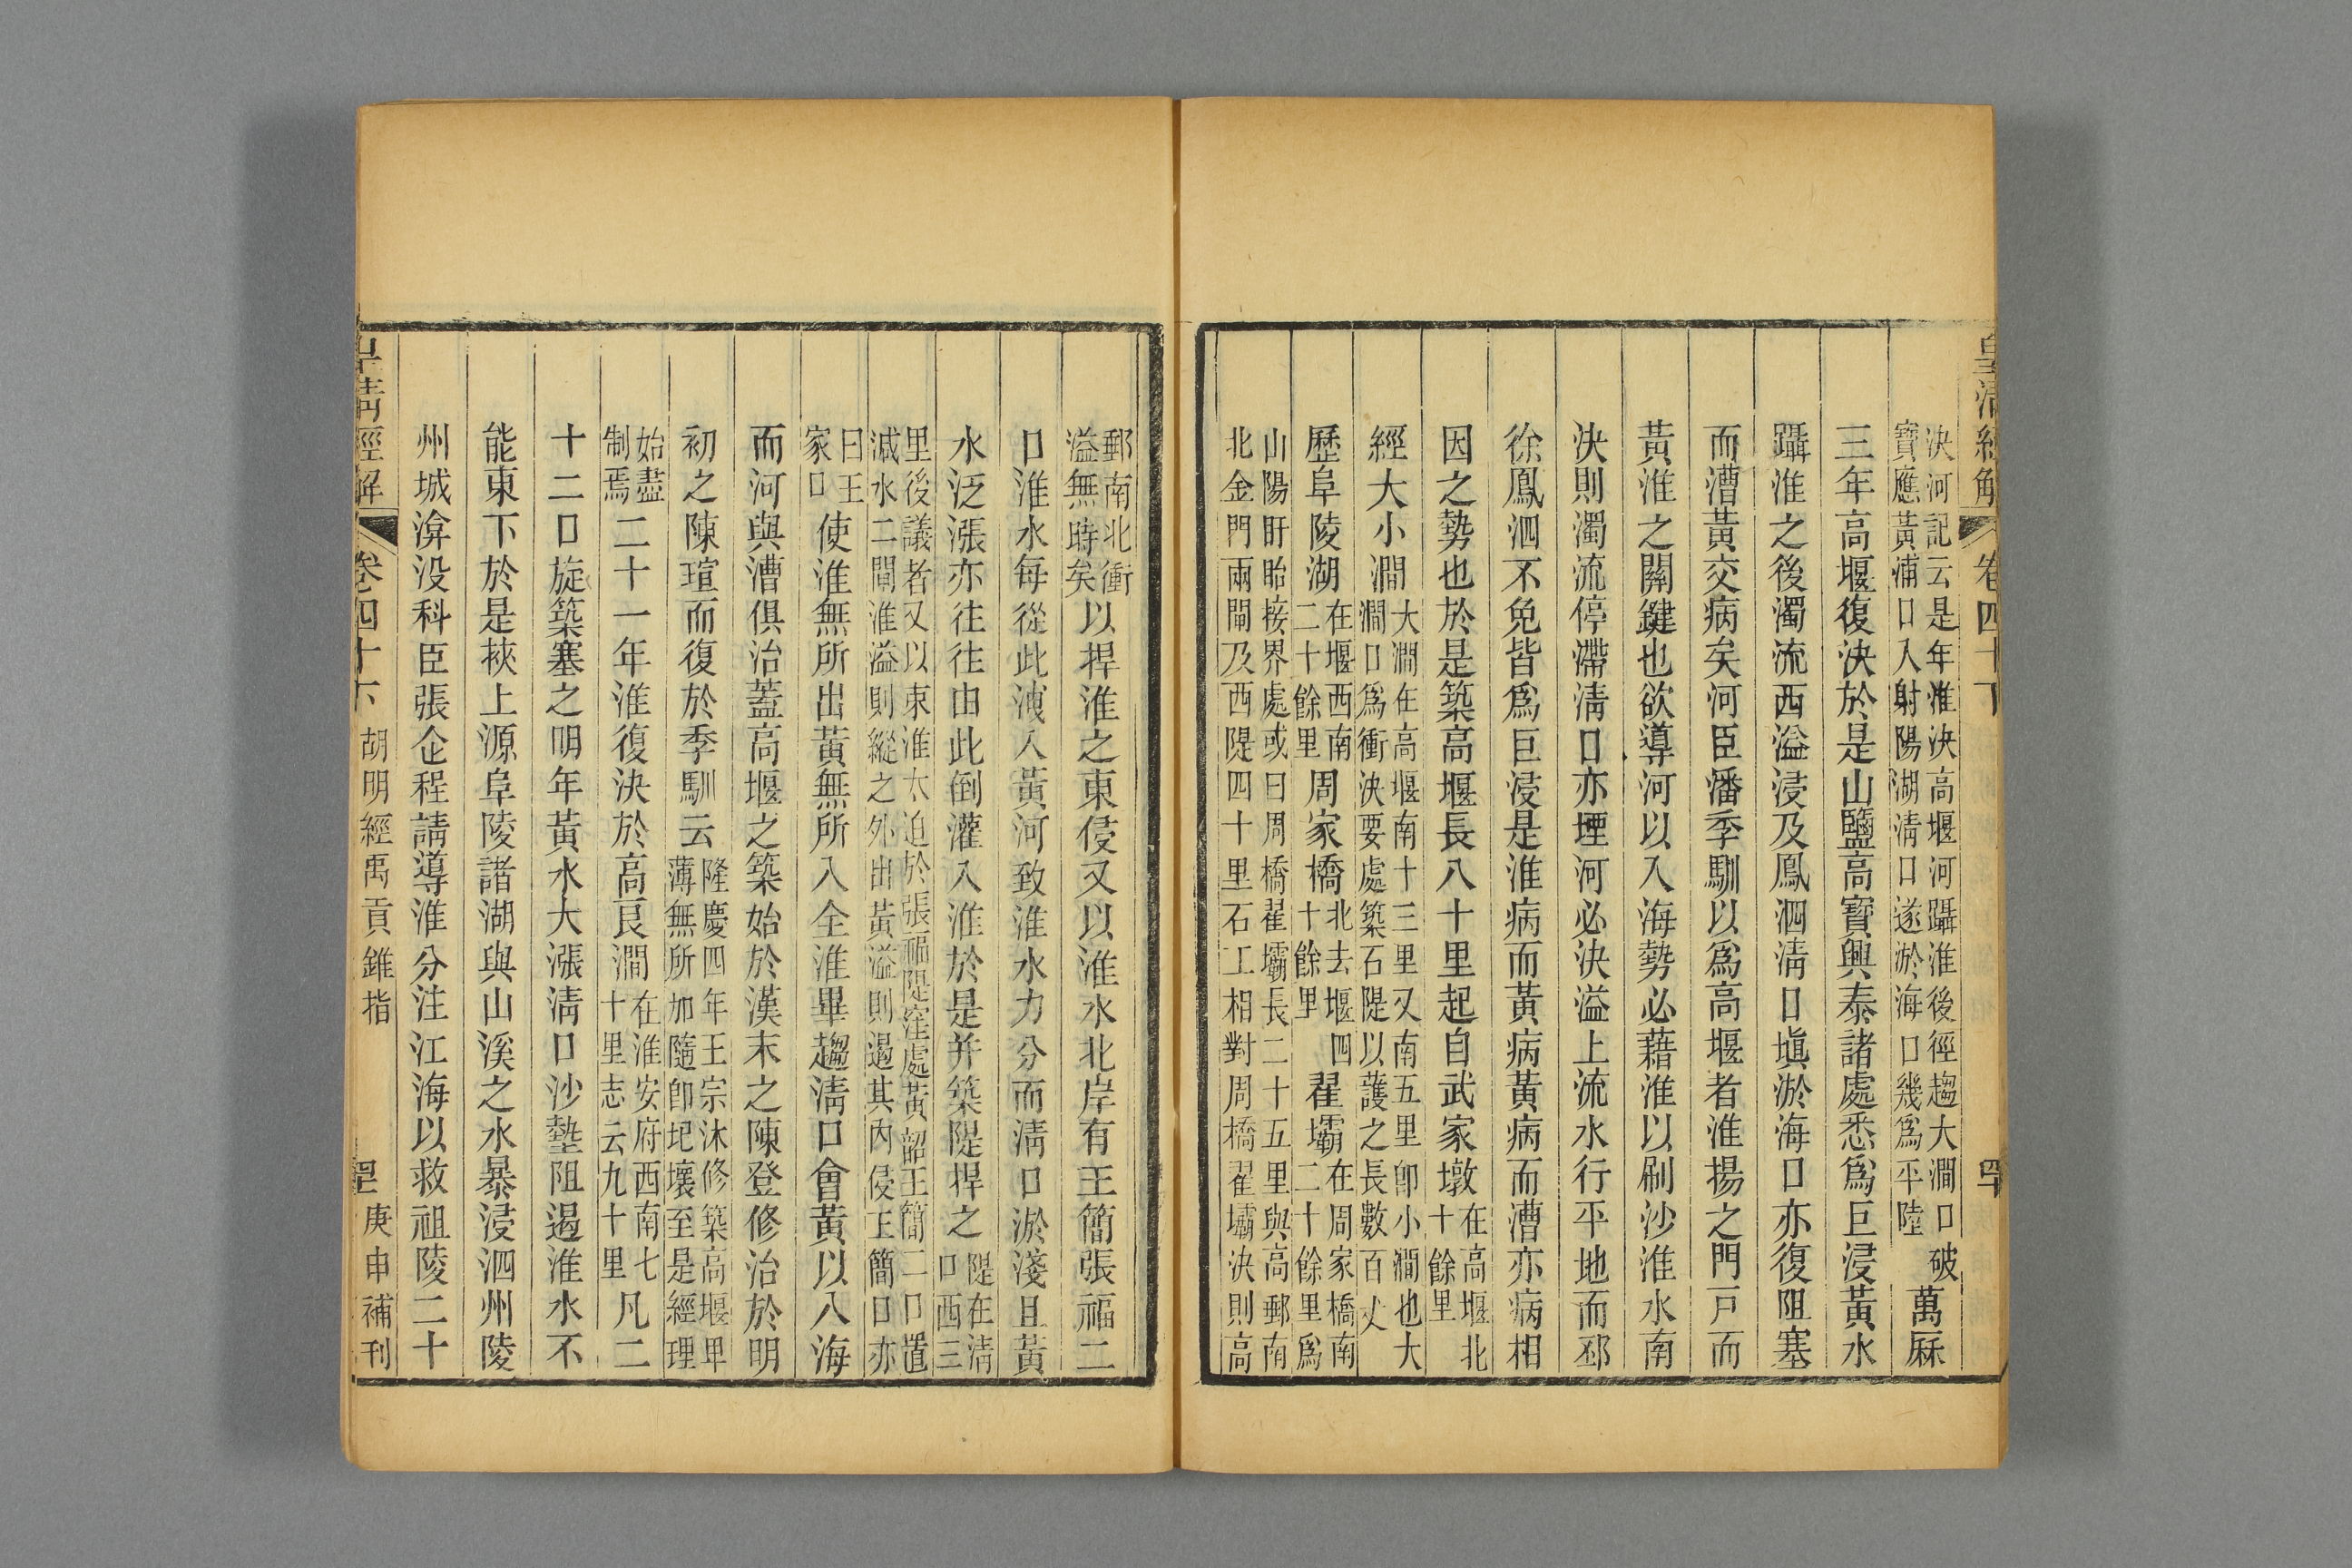 皇清經解 卷四十下 罕
決河記云是年淮決高堰河躡淮後徑趨大澗口破
寶應黃浦口入射陽湖清口遂淤海口幾爲平陸
萬厤
三年高堰復決於是山鹽高寶興泰諸處悉爲巨浸黃水
躡淮之後濁流西溢浸及鳳泗清口塡淤海口亦復阻塞
而漕黃交病矣河臣潘季馴以爲高堰者淮揚之門戸而
黃淮之關鍵也欲導河以入海勢必藉淮以刷沙淮水南
決則濁流停滯清口亦堙河必決溢上流水行平地而邳
徐鳳泗不免皆爲巨浸是淮病而黃病黃病而漕亦病相
因之勢也於是築高堰長八十里起自武家墩
在高堰北
十餘里
經大小澗
大澗在高堰南十三里又南五里卽小澗也大
澗口爲衝決要處築石隄以護之長數百丈
歷阜陵湖
在堰西南
二十餘里
周家橋
北去堰四
十餘里
翟壩
在周家橋南
二十餘里爲
山陽盱眙接界處或曰周橋翟壩長二十五里與高郵南
北金門兩閘及西隄四十里石工相對周橋翟壩決則高
郵南北衝
溢無時矣
以捍淮之東侵又以淮水北岸有王簡張福二
口淮水每從此洩入黃河致淮水力分而清口淤淺且黃
水泛漲亦往往由此倒灌入淮於是并築隄捍之
隄在清
口西三
里後議者又以東淮太迫於張福隄窪處黃韶王簡二口置
減水二閘淮溢則縱之外出黃溢則遏其內侵王簡口亦
曰王
家口
使淮無所出黃無所入全淮畢趨清口會黃以入海
而河與漕俱治蓋高堰之築始於漢末之陳登修治於明
初之陳瑄而復於季馴云
隆慶四年王宗沐修築高堰甲
薄無所加隨卽圮壞至是經理
始盡
制焉
二十一年淮復決於高良澗
在淮安府西南七
十里志云九十里
凡二
十二口旋築塞之明年黃水大漲清口沙墊阻遏淮水不
能東下於是挾上源阜陵諸湖與山溪之水暴浸泗州陵
州城渰没科臣張企程請導淮分注江海以救祖陵二十
皇清經解 卷四十下 胡明經禹貢錐指 庚申補刊